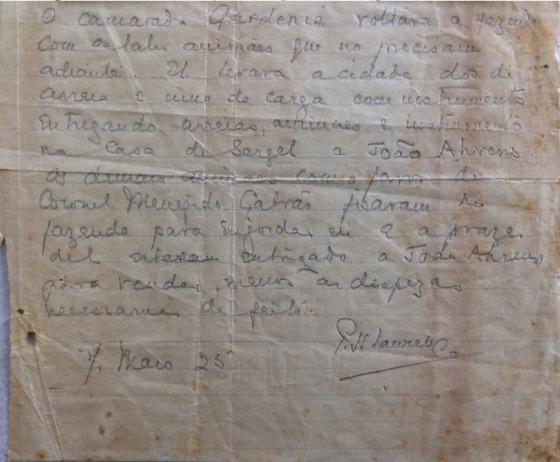 O camarada Gardenia voltára a fazenda
com os tales animães que no precisam
adiante. El levara a cidade dos de
arreia e uma de carga com instrumentos
Entregando arreias, animães e instrumento
na Casa de Sergel a João Ahrens.
os demais animaes com o
Coronel Menegido Galvão ficaram na
fazenda para engordar, en a prazer
del entregado a João Ahrens
para vender, menos as despezas
necessarias de
7, Maio 25
P. H.